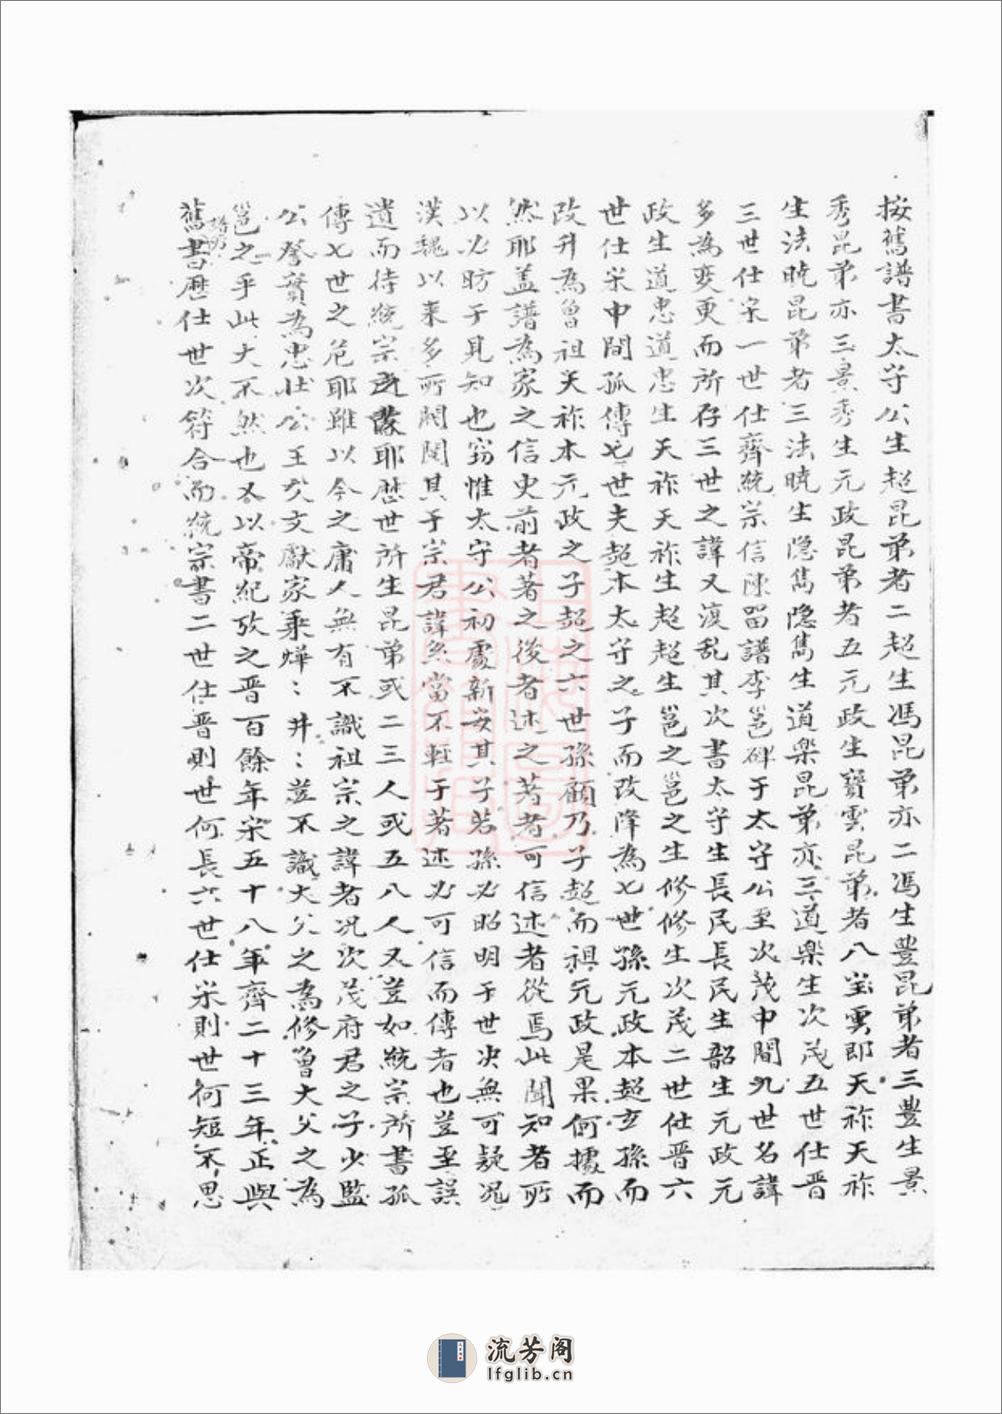 按舊譜書太守公生超昆弟者二超生馮昆弟亦二馮生豊昆弟者三豊生景
秀昆弟亦三景秀生元政昆弟者五元政生寶雲昆弟者八宝雲即天祚天祚
生法暁昆弟者三法暁生隐雋隐雋生道楽昆弟亦三道楽生次茂五世仕晋
三世仕宋一世仕齊統宗信陳畱譜李邕碑于太守公至次茂中間九世名諱
多為变更而所存三世之諱又淆乱其次書太守生長民長民生韶生元政元
政生道忠道忠生天祚天祚生超超生邕之邕之生修修生次茂二世仕晋六
世仕宋中間孤傳七世夫超本太守之子而改降為七世孫元政本超玄孫而
改升為曽祖天祚本元政之子超之六世孫顧乃子超而祖元政是果何據而
然耶盖譜為家之信史前者著之後者述之著者可信述者從焉此聞知者所
以必昉于見知也窃惟太守公初處新安其子若孫必昭明于世决無可疑况
漢魏以来多所関関其于宗君諱系當不輕于著述必可信而傳者也豈至誤
遺而待統宗耶歴世所生昆弟或二三人或五八人又豈如統宗所書孤
傳七世之危耶雖以今之庸人無有不識祖宗之諱者况次茂府君之子少監
公詧實為忠壮公王父文獻家乗燁〻井〻豈不識大父之為修曽大父之為
邕之乎此大不然也又以帝紀攷之晋百餘年宋五十八年齊二十三年正與
舊書歴仕世次符合而統宗書二世仕晋則世何長六世仕宋則世何短不思
流芳阁
lfglib.cn